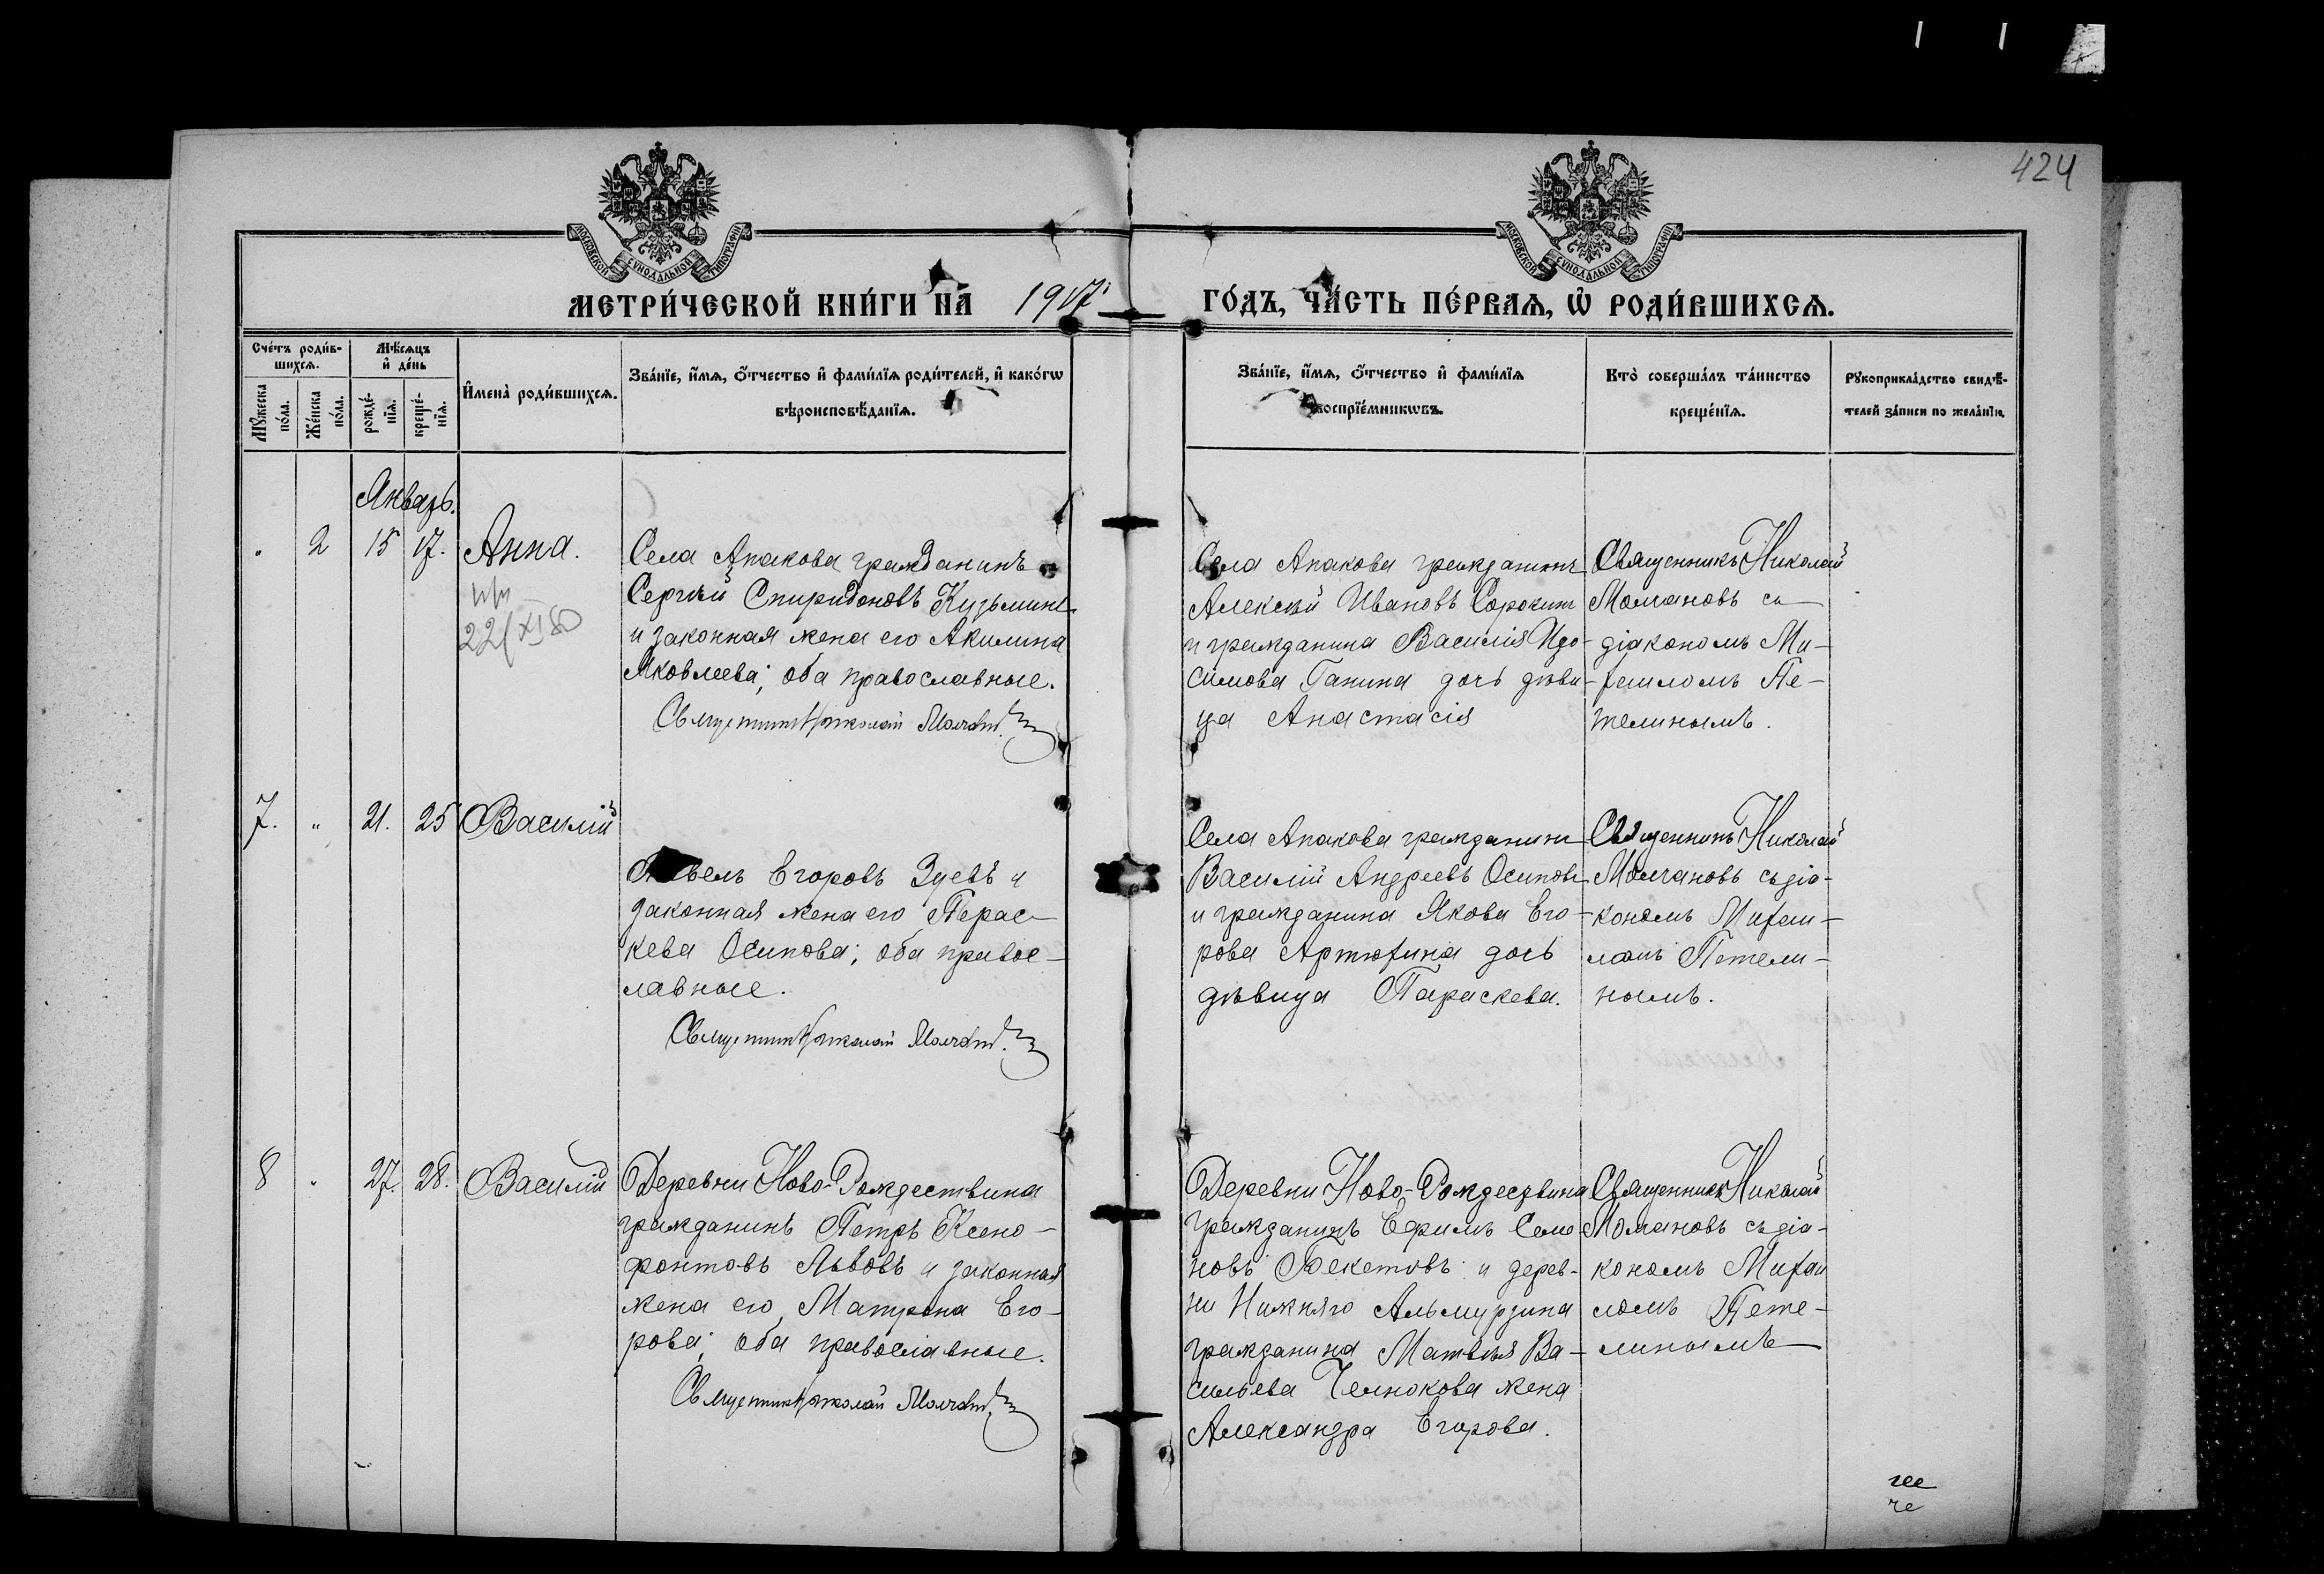 424
МОСКОВСКОЙ СѴНОДАЛЬНОЙ ТИПОГРАФІИ
МОСКОВСКОЙ СѴНОДАЛЬНОЙ ТИПОГРАФІИ
МЕТРИ́ЧЕСКОЙ КНИ́ГИ НА̀ 1917 ГО́ДЪ, ЧА́СТЬ ПЕ́РВАЯ, Ѡ҆ РОДИ́ВШИХСѦ.
Сче́тъ роди́в-
шихсѧ.
Мꙋ́жеска
по́ла.
Же́нска
по́ла.
Мѣ́сѧцъ
и҆ де́нь
рожде́-
нїѧ.
креще́-
нїѧ.
И҆мена̀ роди́вшихсѧ.
Зва́нїе, и҆́мѧ, ѻ҆́тчество и҆ фами́лїѧ роди́телей, и҆ како́гѡ
вѣроисповѣ́данїѧ.
Зва́нїе, и҆́мѧ, ѻ҆́тчество и҆ фами́лїѧ
воспрїе́мникѡвъ.
Кто̀ соверша́лъ та́инство
креще́нїѧ.
Рꙋкоприкла́дство свидѣ́-
телей за́писи по жела́нїю.
Январь.
" 2 15 17. Анна.
22/XI 80
Села Апакова гражданинъ
Сергѣй Спиридоновъ Кузьминъ
и законная жена его Акилина
Яковлева; оба православные.
Священникъ Николай Молчановъ
Села Апакова гражданинъ
Алексѣй Ивановъ Сорокинъ
и гражданина Василія Изо-
симова Ганина дочь дѣви-
ца Анастасія
Священникъ Николай
Молчановъ съ
діакономъ Ми-
хаиломъ Пе-
телинымъ.
7. " 21. 25 Василій
Павелъ Егоровъ Зуевъ и
законная жена его Парас-
кева Осипова; оба правос-
лавные.
Священникъ Николай Молчановъ
Села Апакова гражданинъ
Василій Андреевъ Осиповъ
и гражданина Якова Его-
рова Артюхина дочь
дѣвица Параскева.
Священникъ Николай
Молчановъ съ діа-
кономъ Михаи-
ломъ Петели-
нымъ.
8 " 27. 28. Василій
Деревни Ново-Рождествина
гражданинъ Петръ Ксено-
фонтовъ Львовъ и законная
жена его Матрона Его-
рова; оба православные.
Священникъ Николай Молчановъ
Деревни Ново-Рождествина
гражданинъ Ефимъ Семе
новъ Бекетовъ и дерев-
ни Нижняго Альмурзина
гражданина Матвѣя Ва-
сильева Челнокова жена
Александра Егорова.
Священникъ Николай
Молчановъ съ діа-
кономъ Михаи
ломъ Пете-
линымъ